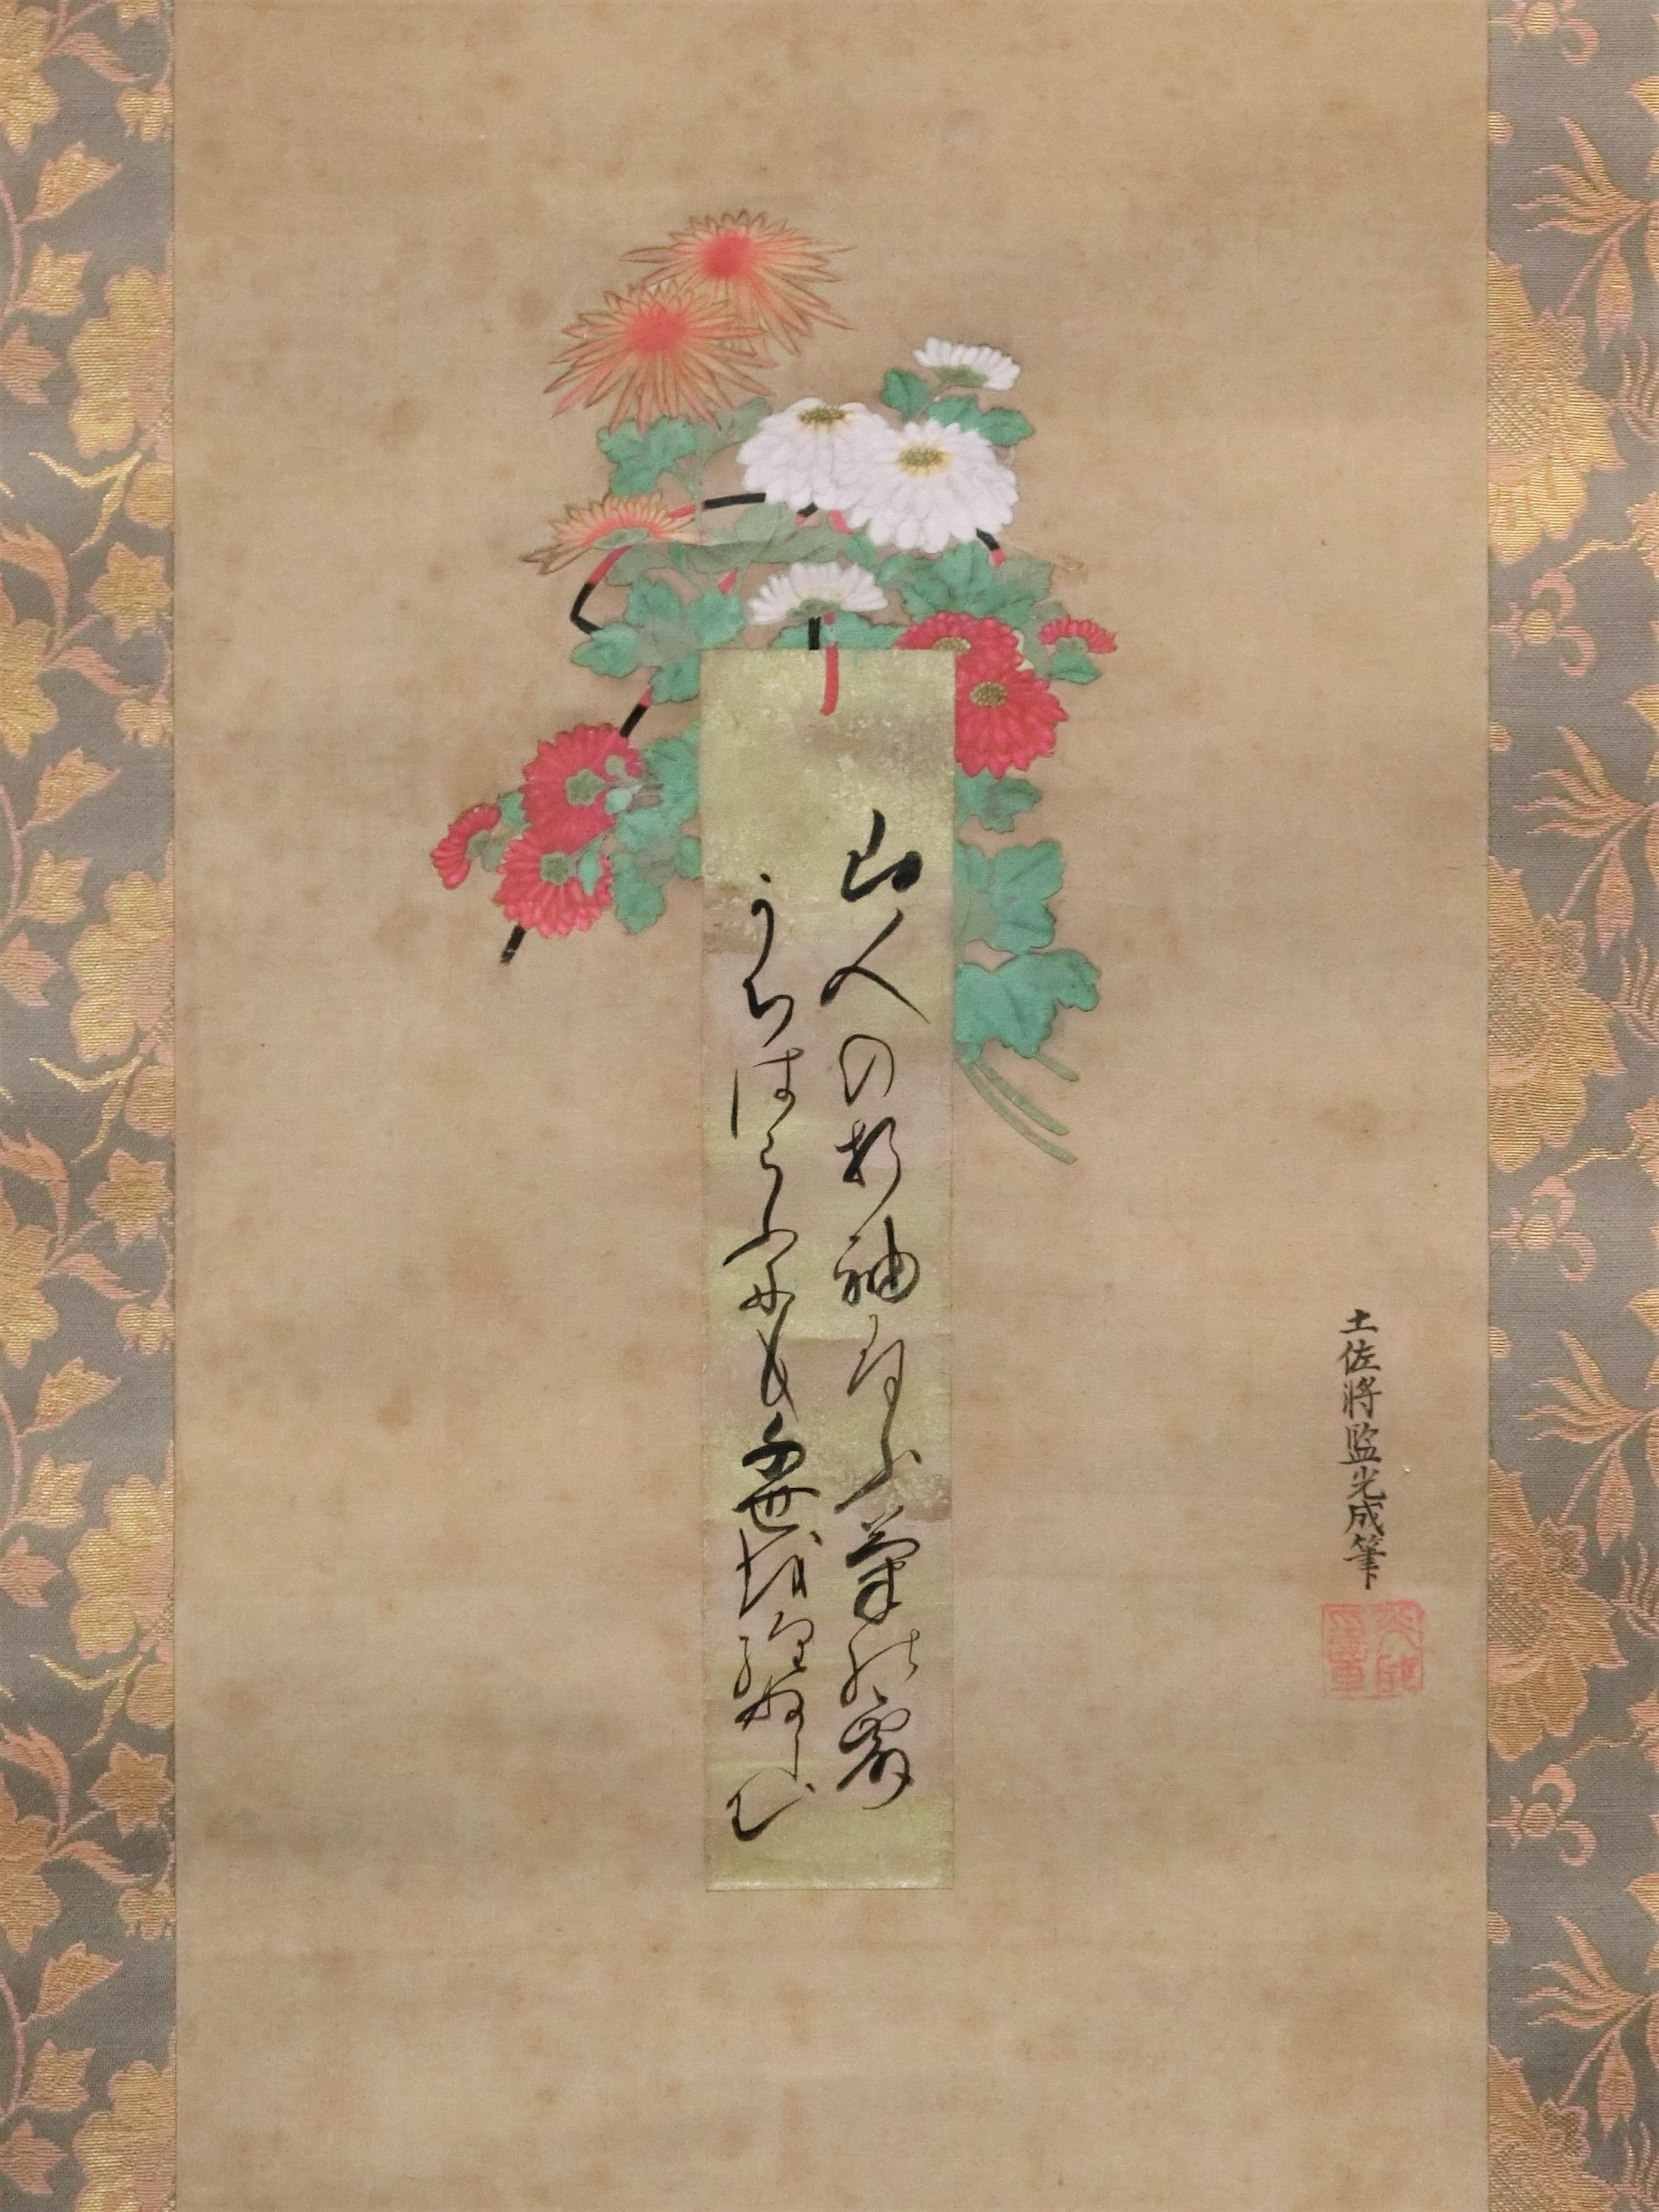 山人の折袖匂ふ菊の露
うちはらふにも千世は経ぬへし
土佐將監光成筆